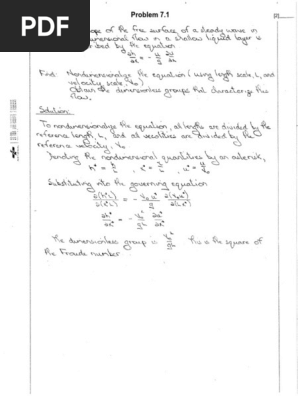 PDF
Problem 7.1
slope of the free surface of a steady wave in
dimensional flow in a shallow liquid layer is
described by the equation
∂h/∂x = - u/g ∂u/∂x
Find: Nondimensionalize the equation (using length scale, L, and
velocity scale, V₀)
Obtain the dimensionless groups that characterize this
flow.
Solution:
To nondimensionalize the equation, all lengths are divided by the
reference length, L, and all velocities are divided by the
reference velocity, V₀
Denoting the nondimensional quantities by an asterisk,
h* = h/L , x* = x/L , u* = u/V₀
Substituting into the governing equation
∂(h*L)/∂(x*L) = - V₀u*/g ∂(V₀u*)/∂(Lx*)
∂h*/∂x* = - V₀²/gL u* ∂u*/∂x*
The dimensionless group is V₀²/gL This is the square of
the Froude number